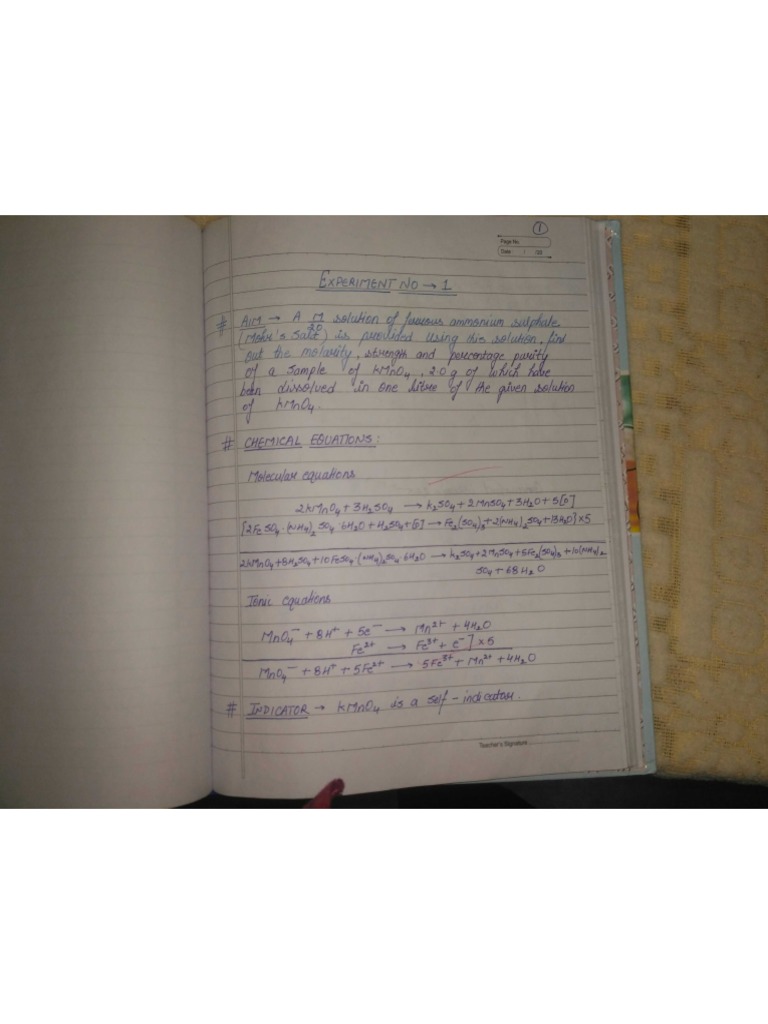 1
Page No.
Date : / /20
EXPERIMENT NO → 1
# AIM → A M/20 solution of ferrous ammonium sulphate
(Mohr's Salt) is provided using this solution, find
out the molarity, strength and percentage purity
of a sample of KMnO₄, 2.0 g of which have
been dissolved in one litre of the given solution
of KMnO₄.
# CHEMICAL EQUATIONS:
Molecular equations
2KMnO₄ + 3H₂SO₄ → K₂SO₄ + 2MnSO₄ + 3H₂O + 5[O]
[2FeSO₄·(NH₄)₂SO₄·6H₂O + H₂SO₄ + [O] → Fe₂(SO₄)₃ + 2(NH₄)₂SO₄ + 13H₂O] × 5
2KMnO₄ + 8H₂SO₄ + 10FeSO₄·(NH₄)₂SO₄·6H₂O → K₂SO₄ + 2MnSO₄ + 5Fe₂(SO₄)₃ + 10(NH₄)₂
SO₄ + 68H₂O
Ionic equations
MnO₄⁻ + 8H⁺ + 5e⁻ → Mn²⁺ + 4H₂O
Fe²⁺ → Fe³⁺ + e⁻] × 5
MnO₄⁻ + 8H⁺ + 5Fe²⁺ → 5Fe³⁺ + Mn²⁺ + 4H₂O
# INDICATOR → KMnO₄ is a self-indicator.
Teacher's Signature